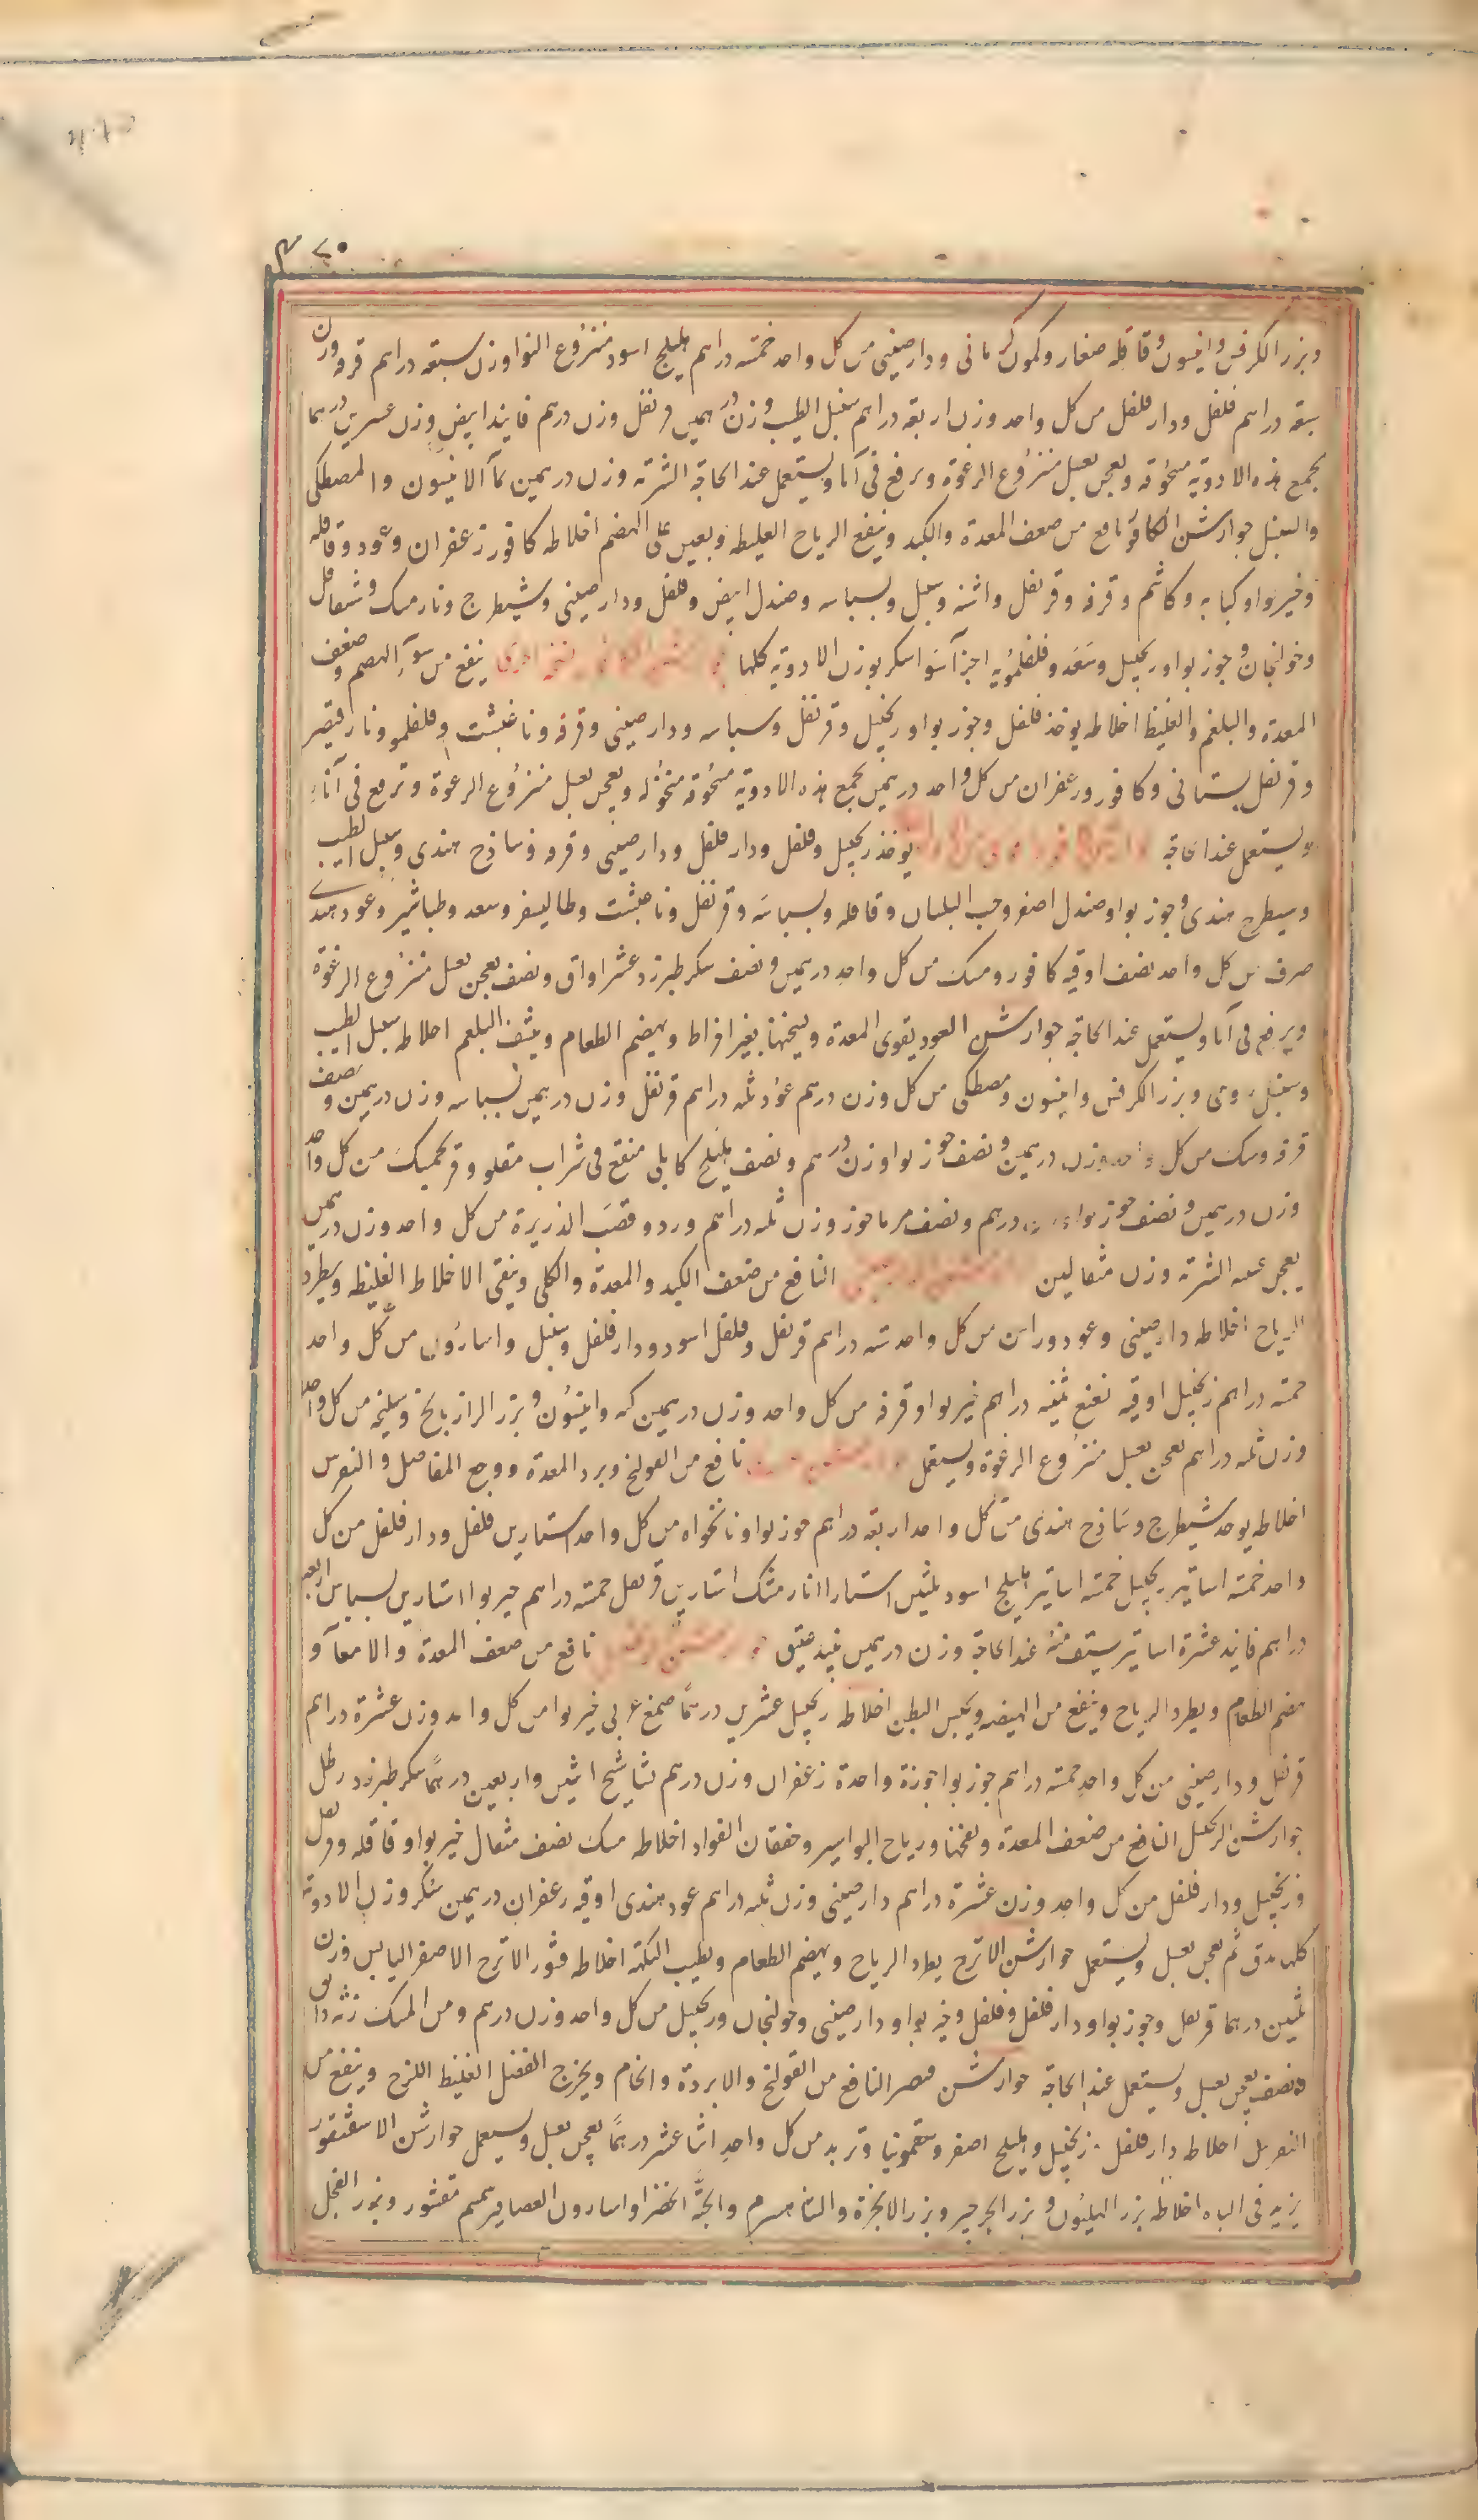 ٧٠
وبزر الكرفس وانيسون وقاقله صغار وكمون كرمانى ودارصينى من كل واحد خمسة دراهم هليلج اسود منزوع النوا وزن سبعة دراهم قرفه وزن
سبعة دراهم فلفل ودارفلفل من كل واحد وزن اربعة دراهم سنبل الطيب وزن درهمين قرنفل وزن درهم فانيذ ابيض وزن عشرين درهما
يجمع هذه الادوية مسحوقه ويعجن بعسل منزوع الرغوة ويرفع فى آنا ويستعمل عند الحاجة الشربه وزن درهمين بمآ الانيسون والمصطكى
والسنبل جوارشن الكافور نافع من ضعف المعدة والكبد وينفع الرياح الغليظه ويعين على الهضم اخلاطه كافور زعفران وعود وقاقله
وخيربوا وكبابه وكاشم وقرفه وقرنفل واشنه وسنبل وبسباسه وصندل ابيض وفلفل ودارصينى وشيطرج ونارمسك وشقاقل
وخولنجان وجوزبوا وزنجبيل وسعد وفلفلمويه اجزآ سوا سكر بوزن الادوية كلها نسخه اخرى ينفع من سوء الهضم وضعف
المعدة والبلغم والغليظ اخلاطه يوخذ فلفل وجوزبوا وزنجبيل وقرنفل وبسباسه ودارصينى وقرفه ونا وفلفلمو ونارقيصر
وقرنفل بستانى وكافور وزعفران من كل واحد درهمين يجمع هذه الادويه مسحوقه منخوله ويعجن بعسل منزوع الرغوة وترفع فى آناء
ويستعمل عند الحاجه يوخذ زنجبيل وفلفل ودارفلفل ودارصينى وقرفه وساذج هندى وسنبل الطيب
وشيطرج هندى وجوزبوا وصندل اصفر وحب البلسان وقاقله وبسباسه وقرنفل وطاليسفر وسعد وطباشير وعود هندى
صرف من كل واحد نصف اوقيه كافور ومسك من كل واحد درهمين ونصف سكر طبرزد عشر اواق ونصف يعجن بعسل منزوع الرغوة
ويرفع فى آنا ويستعمل عند الحاجة جوارشن العود يقوى المعدة ويسخنها بغير افراط ويهضم الطعام وينشف البلغم اخلاطه سنبل الطيب
وسنبل رومى وبزر الكرفس وانيسون ومصطكى من كل وزن درهم عود ثلثه دراهم قرنفل وزن درهمين بسباسه وزن درهمين ونصف
قرفه ومسك من كل وزن درهمين ونصف جوزبوا وزن درهم ونصف هليلج كابلى منقع فى شراب مقلو وفرنجمسك من كل واحد
وزن درهمين ونصف جوزبوا درهم ونصف مرماحوز وزن ثلثه دراهم ورد وقصب الذريرة من كل واحد وزن درهمين
يعجن الشربه وزن مثقالين النافع من ضعف الكبد والمعدة والكلى وينقى الاخلاط الغليظه ويطرد
الرياح اخلاطه دارصينى وعود وراسن من كل واحد سته دراهم قرنفل وفلفل اسود ودارفلفل وسنبل واسارون من كل واحد
خمسه دراهم زنجبيل اوقيه نعنع ثمنيه دراهم خيربوا وقرفه من كل واحد وزن درهمين وانيسون وبزر الرازيانج وسليخه من كل واحد
وزن ثلثه دراهم يعجن بعسل منزوع الرغوة ويستعمل نافع من القولنج وبرد المعدة ووجع المفاصل والنقرس
اخلاطه يوخذ شيطرج وساذج هندى من كل واحد اربعة دراهم جوزبوا ونانخواه من كل واحد استارين فلفل ودارفلفل من كل
واحد خمسه اساتير زنجبيل خمسه اساتير هليلج اسود ثلثين استارا انارمشك استارين قرنفل خمسه دراهم خيربوا استارين بسباس اربعه
دراهم فانيذ عشرة اساتير يستف منه عند الحاجة وزن درهمين نبيذ عتيق نافع من ضعف المعدة والامعآ و
هضم الطعام ويطرد الرياح وينفع من الهيضه ويحبس البطن اخلاطه زنجبيل عشرين درهماً صمغ عربى خيربوا من كل واحد وزن عشرة دراهم
قرنفل ودارصينى من كل واحد خمسه دراهم جوزبوا جوزة واحدة زعفران وزن درهم اثنين واربعين درهماً سكر طبرزد رطل
جوارشن الزنجبيل النافع من ضعف المعدة ونفخها ورياح البواسير وخفقان الفواد اخلاطه مسك نصف مثقال خيربوا وقاقله وقرنفل
وزنجبيل ودارفلفل من كل واحد وزن عشرة دراهم دارصينى وزن ثلثه دراهم عود هندى اوقيه زعفران درهمين سكر وزن الادوية
كلها يدق ثم يعجن بعسل ويستعمل جوارشن الاترج يطرد الرياح ويهضم الطعام ويطيب النكهة اخلاطه قشور الاترج الاصفر اليابس وزن
ثلثين درهما قرنفل وجوزبوا ودارفلفل وفلفل وخيربوا ودارصينى وخولنجان وزنجبيل من كل واحد وزن درهم ومن المسك
ونصف يعجن بعسل ويستعمل عند الحاجه جوارشن قيصر النافع من القولنج والابردة والخام ويخرج الفضل الغليظ اللزج وينفع من
النقرس اخلاطه دارفلفل زنجبيل وهليلج اصفر وسقمونيا وتربد من كل واحد اثنا عشر درهماً يعجن بعسل ويستعمل جوارشن الاسقنقور
يزيد فى الباه اخلاطه بزر الهليون وبزر الجرجير وبزر الانجرة والشاهسبرم والحبة الخضرا واسارون العصافير سمسم مقشور وبزر الفجل